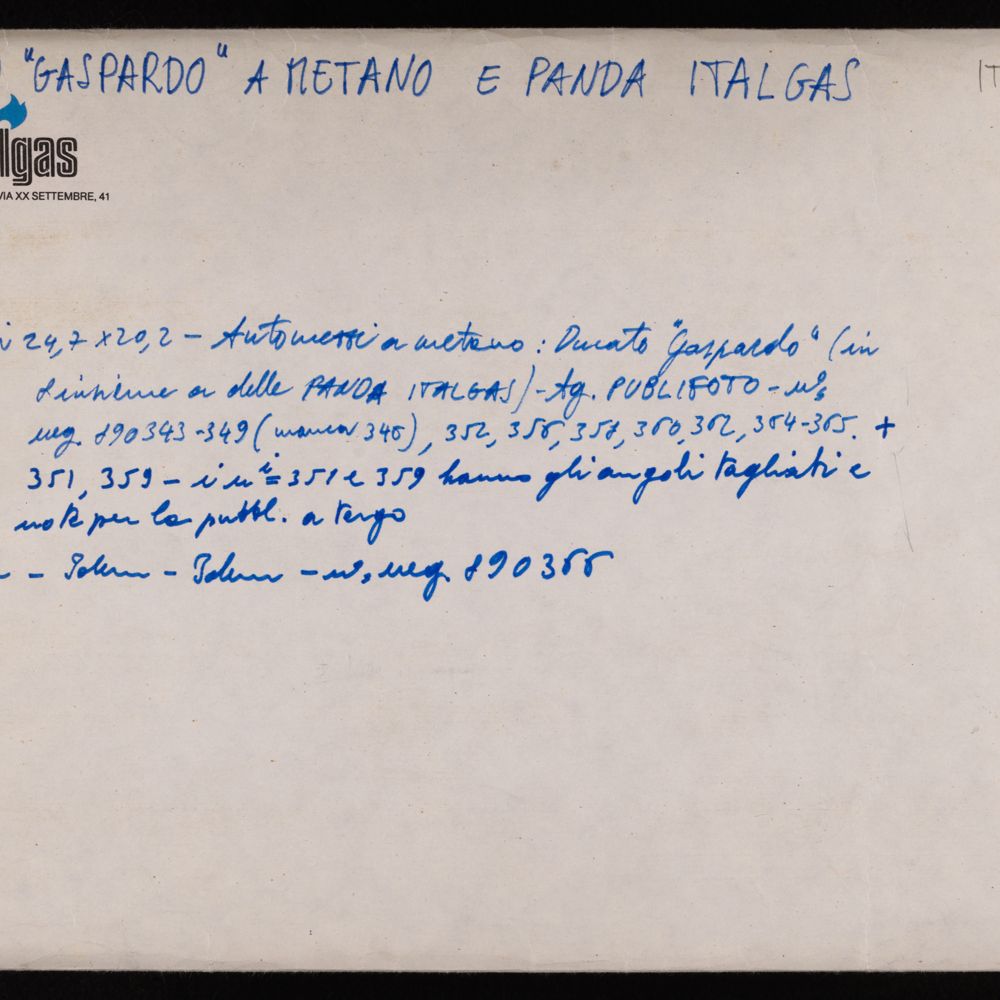 "GASPARDO" A METANO E PANDA ITALGAS IT
lgas
VIA XX SETTEMBRE, 41
i 24,7 x 20,2 - Automezzi a metano: Ducato "Gaspardo" (in
insieme a delle PANDA ITALGAS) - Ag. PUBLIFOTO - n°s
neg. 890343-349 (manca 346), 352, 356, 357, 360, 362, 364-365. +
351, 359 - i ni = 351 e 359 hanno gli angoli tagliati e
note per la pubbl. a tergo
- Idem - Idem - n° neg. 890366